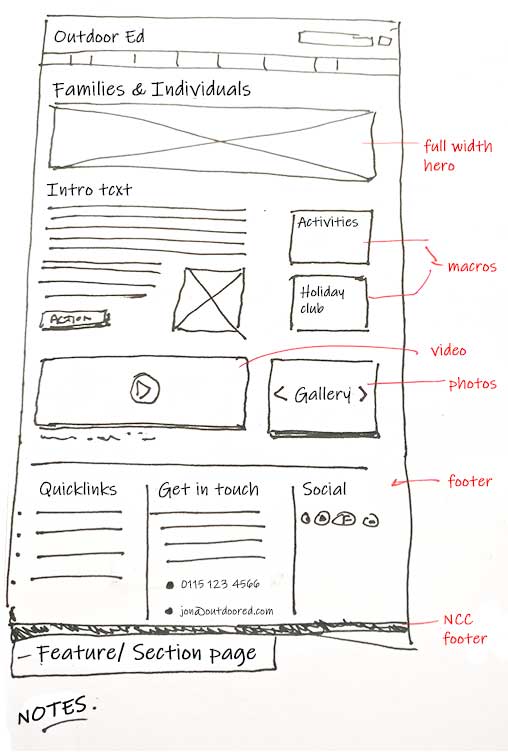 Outdoor Ed
Families & Individuals
full width
hero
Intro text
Activities
macros
Holiday
club
ACTION
video
photos
< Gallery >
footer
Quicklinks
Get in touch
Social
0115 123 4566
jon@outdoored.com
NCC
footer
– Feature/ Section page
NOTES.